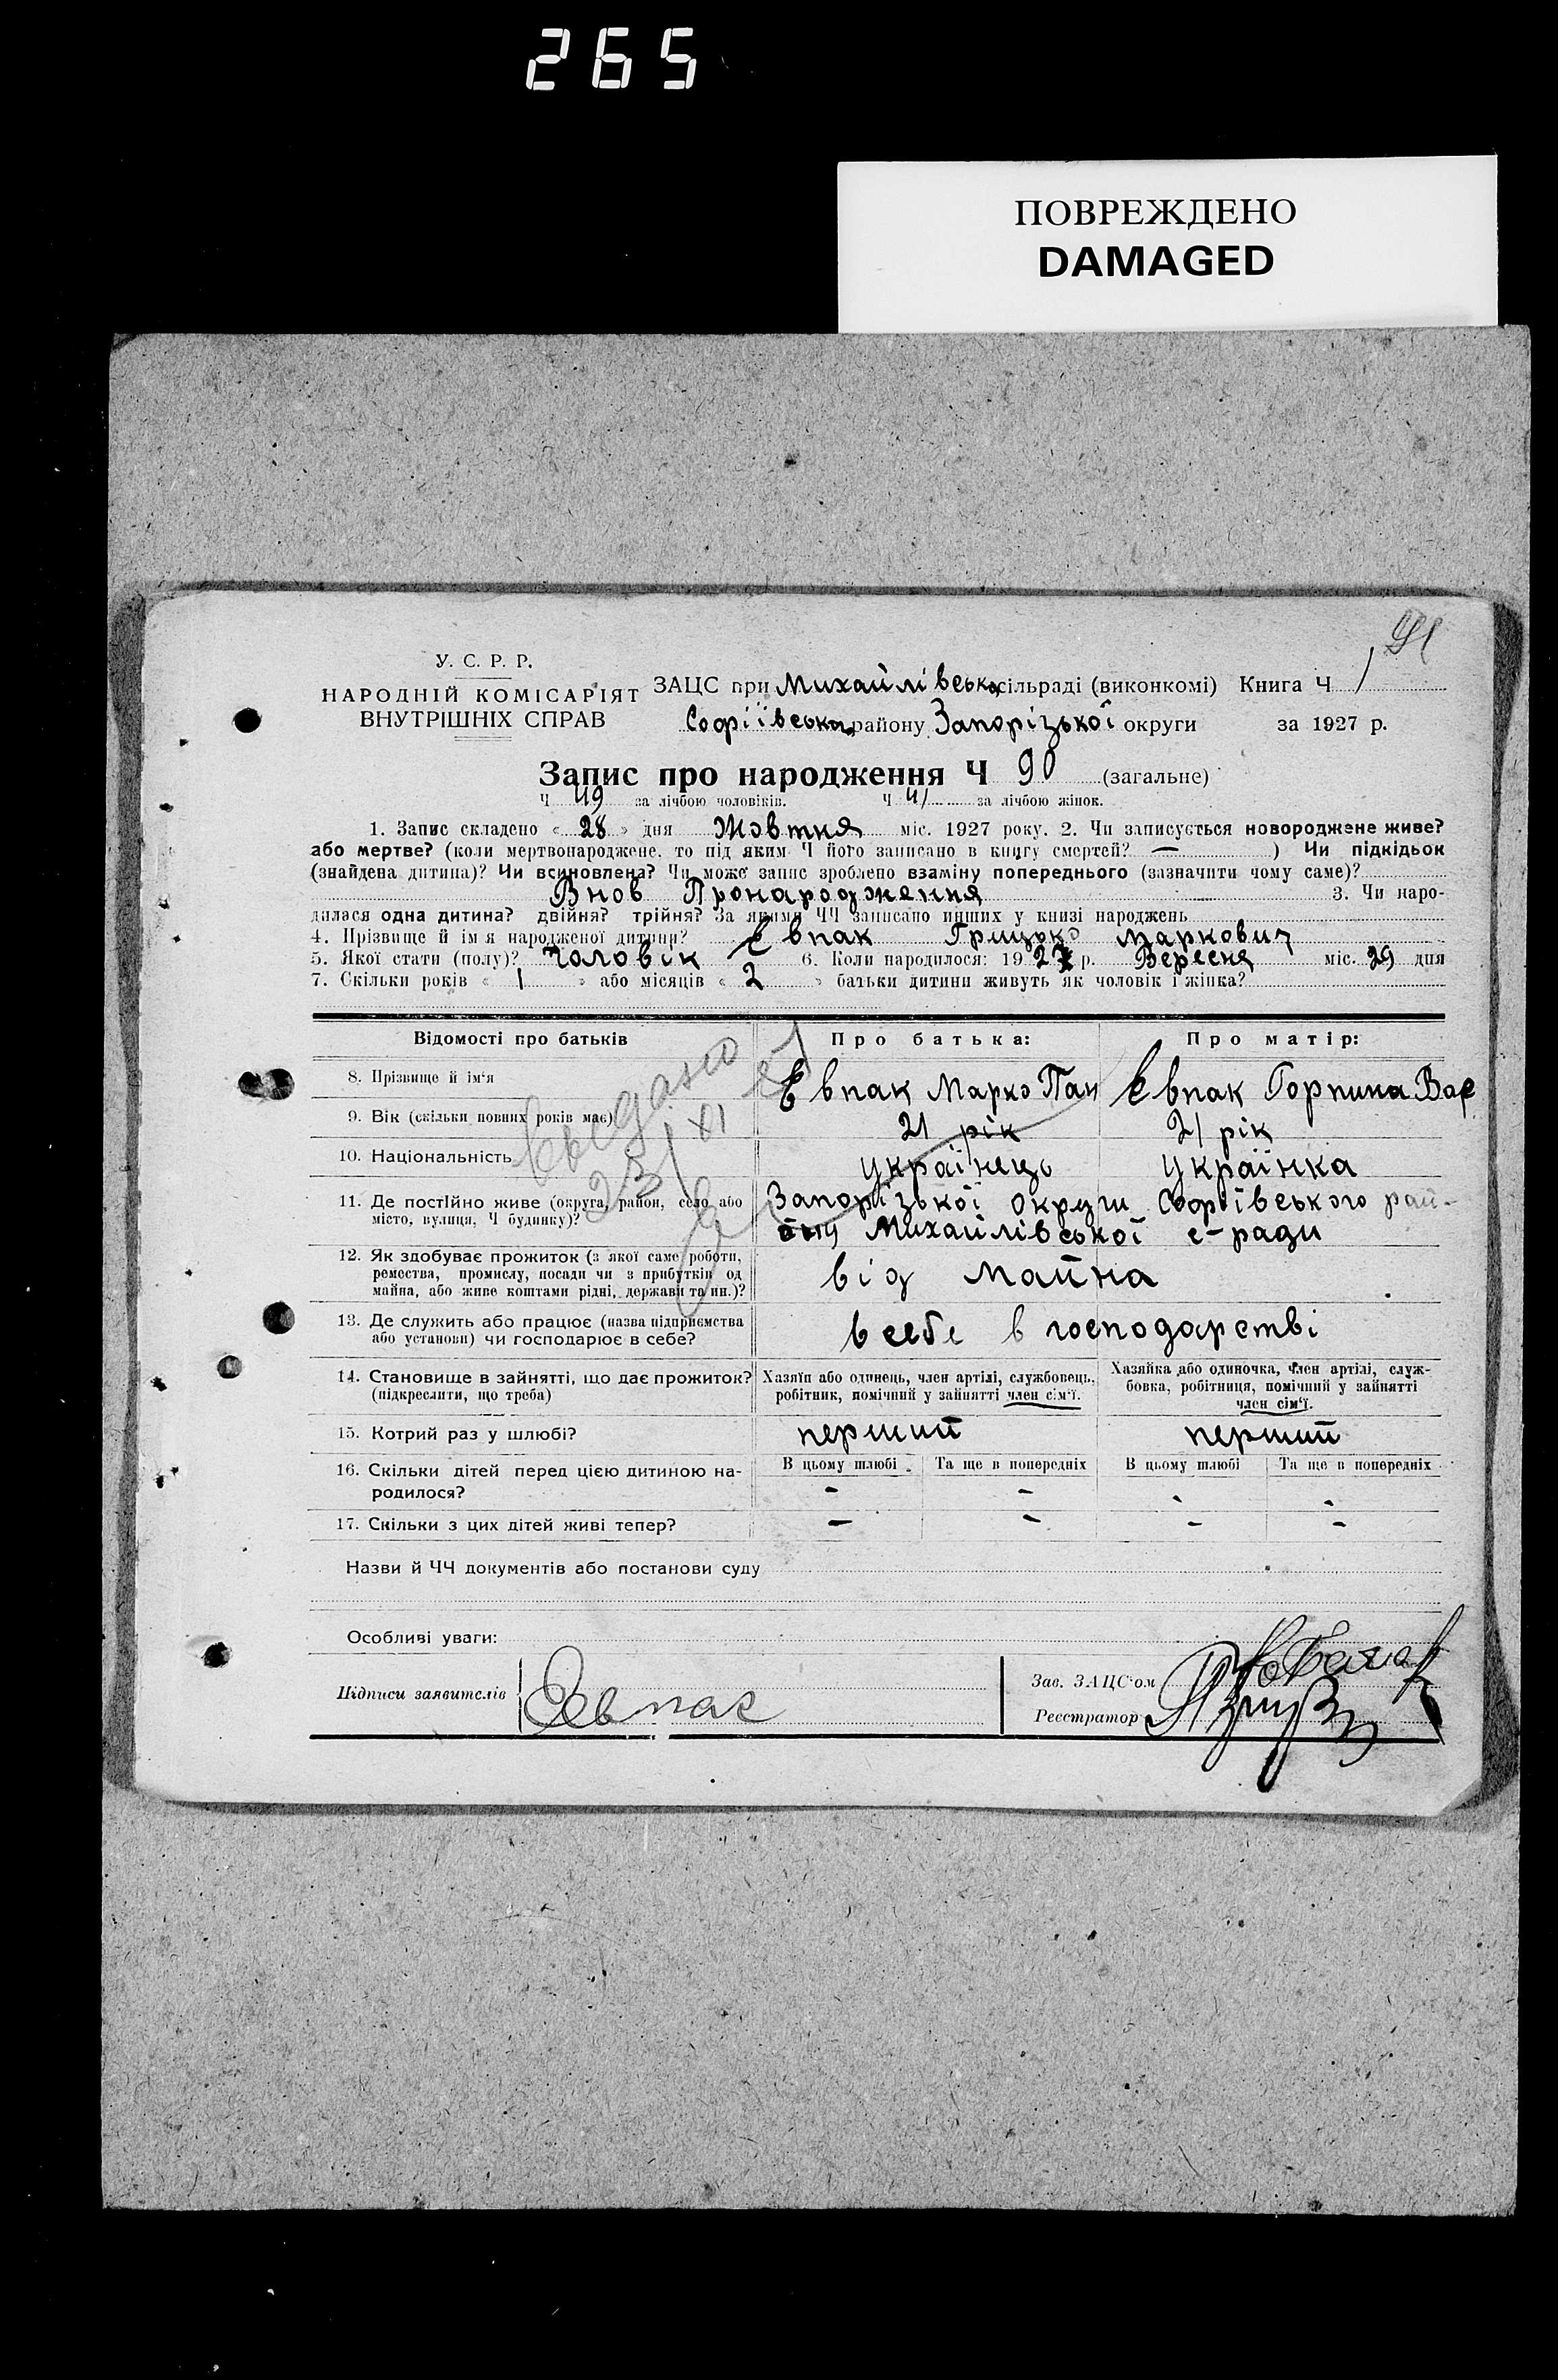 265
ПОВРЕЖДЕНО
DAMAGED
У. С. Р. Р.
НАРОДНІЙ КОМІСАРІЯТ
ВНУТРІШНІХ СПРАВ
ЗАЦС при Михайлівська сільраді (виконкомі) Книга Ч 1
Софіївська району Запорізької округи за 1927 р.
Запис про народження Ч 90 (загальне)
Ч 49 за лічбою чоловіків. Ч 41 за лічбою жінок.
1. Запис складено « 28 » дня Жовтня міс. 1927 року. 2. Чи записується новороджене живе?
або мертве? (коли мертвонароджене, то під яким Ч його записано в книгу смертей? — ) Чи підкідьок
(знайдена дитина)? Чи всиновлена? Чи може запис зроблено взаміну попереднього (зазначити чому саме)?
Внов Пронародження 3. Чи наро-
дилася одна дитина? двійня? трійня? За якими ЧЧ записано инших у книзі народжень
4. Прізвище й ім'я народженої дитини? Евпак Грицько Маркович
5. Якої стати (полу)? Чоловік 6. Коли народилося: 1927 р. Вересня міс. 29 дня
7. Скільки років « 1 » або місяців « 2 » батьки дитини живуть як чоловік і жінка?
Відомості про батьків Про батька: Про матір:
8. Прізвище й ім'я Евпак Марко Пан Евпак Горпина Вар
9. Вік (скільки повних років має) 21 рік 21 рік
10. Національність українець українка
11. Де постійно живе (округа, район, село або Запорізької округи Софіївського рай-
місто, вулиця, Ч будинку)? ону Михайлівської с-ради
12. Як здобуває прожиток (з якої саме роботи,
ремества, промислу, посади чи з прибутків од від майна
майна, або живе коштами рідні, держави та ин.)?
13. Де служить або працює (назва підприємства в себе в господарстві
або установи) чи господарює в себе?
14. Становище в зайнятті, що дає прожиток? Хазяїн або одинець, член артілі, службовець, Хазяйка або одиночка, член артілі, служ-
(підкреслити, що треба) робітник, помічний у зайнятті член сім'ї. бовка, робітниця, помічний у зайнятті
член сім'ї.
15. Котрий раз у шлюбі? перший перший
16. Скільки дітей перед цією дитиною на- В цьому шлюбі Та ще в попередніх В цьому шлюбі Та ще в попередніх
родилося? - - - -
17. Скільки з цих дітей живі тепер? - - - -
Назви й ЧЧ документів або постанови суду
Особливі уваги:
Підписи заявителів Евпак
Зав. ЗАЦС'ом
Реєстратор